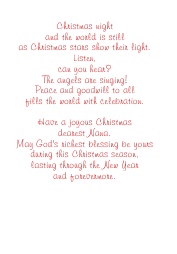 Christmas night
and the world is still
as Christmas stars show their light.
Listen,
can you hear?
The angels are singing!
Peace and goodwill to all
fills the world with celebration.

Have a joyous Christmas
dearest Nana.
May God's richest blessing be yours
during this Christmas season,
lasting through the New Year
and forevermore.